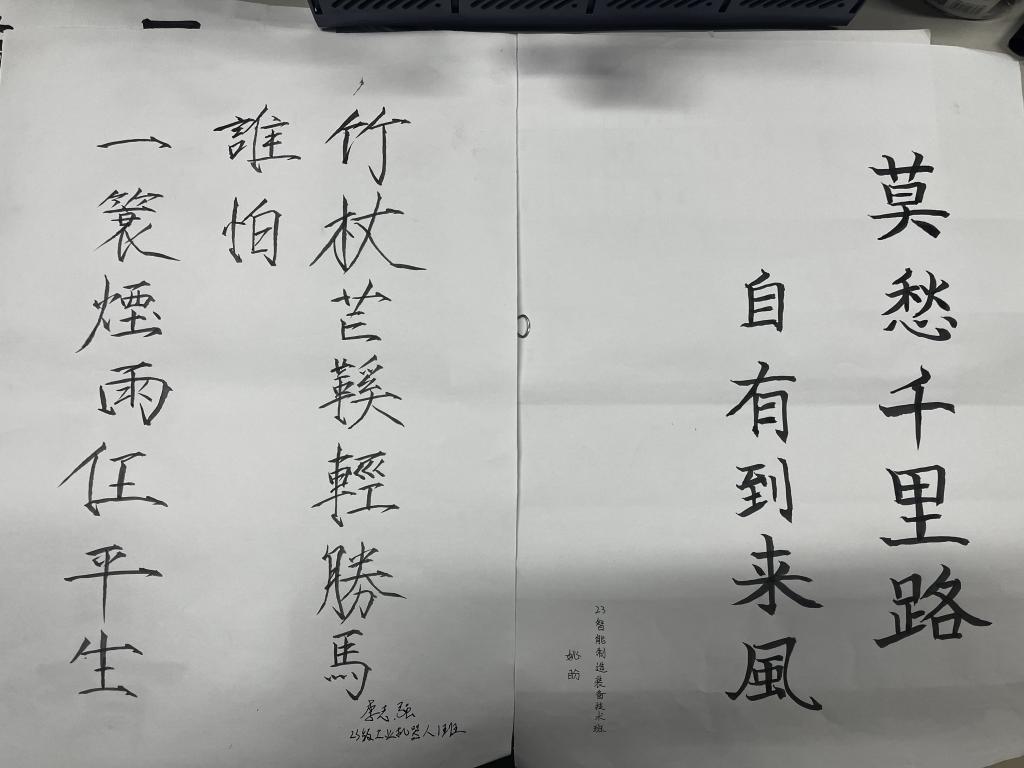 莫愁千里路
自有到来風
23智能制造装备技术班
姚
竹杖芒鞵輕勝馬
誰怕
一簑煙雨任平生
李志强
23级工业机器人1班